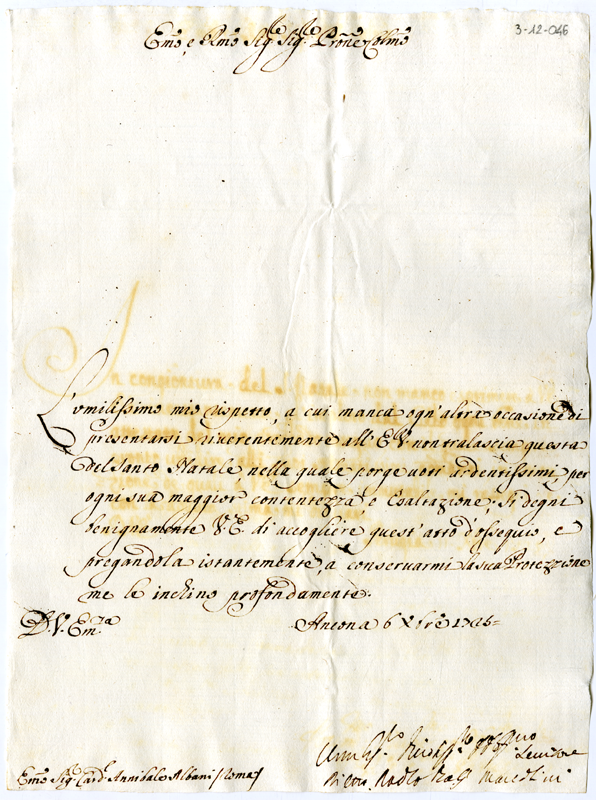 3-12-046
Emo, e Rmo Sigr. Sigr. Prone Colmo
L'umilissimo mio rispetto, a cui manca ogn'altra occasione di
presentarsi riverentemente all'E.V. non tralascia questa
del Santo Natale, nella quale porge voti ardentissimi, per
ogni sua maggior contentezza, e Esaltazione; Si degni
benignamente V.E. di accogliere quest'atto d'ossequio, e
pregandola istantemente, a conservarmi la sua Protezzione
me le inchino profondamente.
D.V. Em.za
Ancona 6 Xbre 1725=
Emo Sigr. Card. Annibale Albani /Roma/